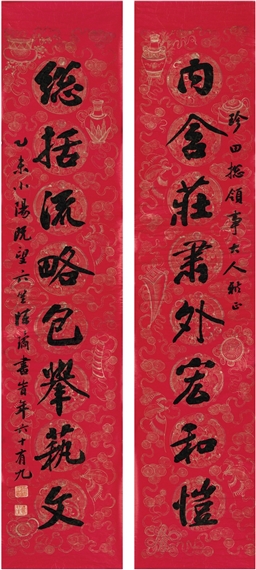 珍田總領事大人雅正
內含莊肅外宏和愷
總括流略包舉藝文
乙未小陽既望六笙惲濟書時年六十有九